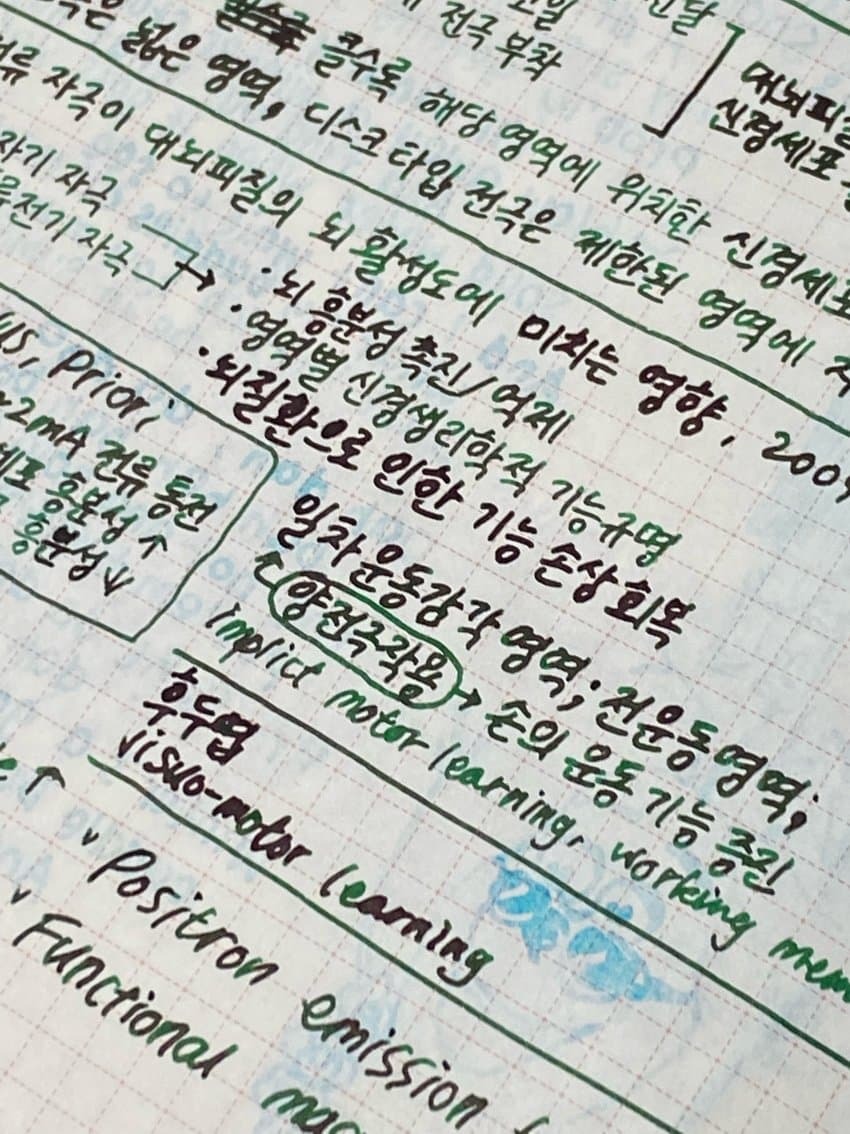 전극 부착
대뇌피질
신경세포
넓은 영역, 디스크 타입 전극은 제한된 영역에
클수록 해당 영역에 위치한 신경세포
자극이 대뇌피질의 뇌 활성도에 미치는 영향, 2009
자기 자극
전기 자극 →
· 뇌 흥분성 촉진/억제
· 영역별 신경생리학적 기능규명
· 뇌질환으로 인한 기능 손상 회복
Priori
2mA 전류 통전
흥분성 ↑
흥분성 ↓
일차 운동감각 영역; 전운동영역;
↑ 양전극작용 → 손의 운동 기능 증진
implict motor learning, working mem
후두엽
visuo-motor learning
↑
✓ Positron emission
✓ Functional